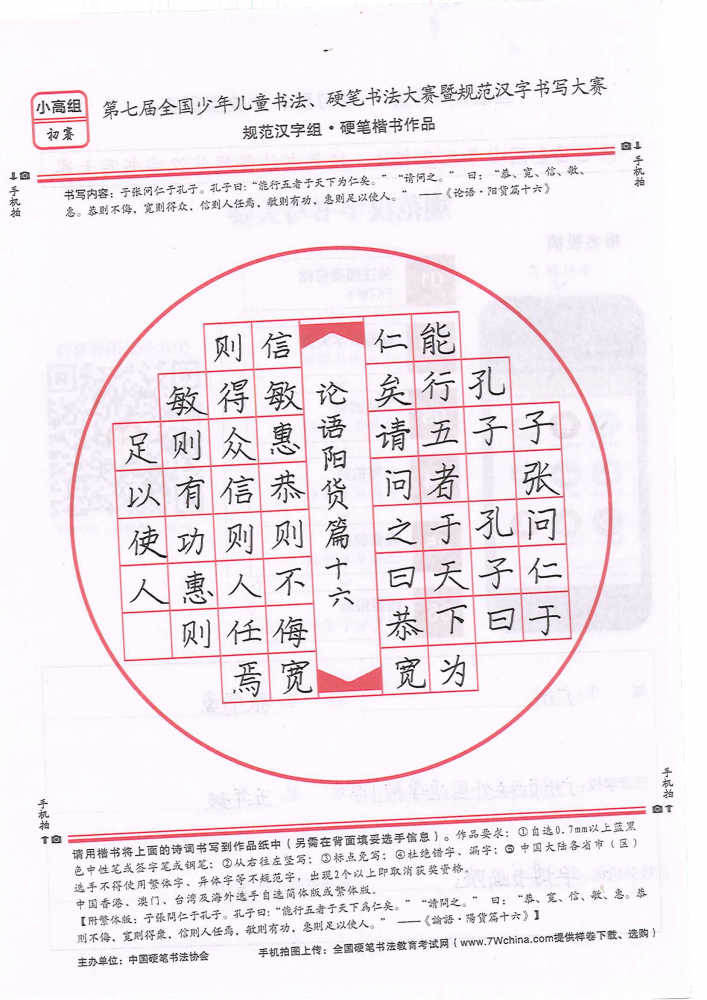 小高组
初赛
第七届全国少年儿童书法、硬笔书法大赛暨规范汉字书写大赛
规范汉字组·硬笔楷书作品
手机拍
手机拍
书写内容：子张问仁于孔子。孔子曰："能行五者于天下为仁矣。" "请问之。" 曰："恭、宽、信、敏、
惠。恭则不侮，宽则得众，信则人任焉，敏则有功，惠则足以使人。" ——《论语·阳货篇十六》
子张问仁于
孔子孔子曰
能行五者于天下为
仁矣请问之曰恭宽
论语阳货篇十六
信敏惠恭则不侮宽
则得众信则人任焉
敏则有功惠则
足以使人
手机拍
手机拍
请用楷书将上面的诗词书写到作品纸中（另需在背面填妥选手信息）。作品要求：①自选0.7mm以上蓝黑
色中性笔或签字笔或钢笔；②从右往左竖写；③标点免写；④杜绝错字、漏字；⑤中国大陆各省市（区）
选手不得使用繁体字、异体字等不规范字，出现2个以上即取消获奖资格。
中国香港、澳门、台湾及海外选手自选简体版或繁体版。
【附繁体版：子張問仁于孔子。孔子曰："能行五者于天下爲仁矣。" "請問之。" 曰："恭、寬、信、敏、惠。恭
则不侮，寬则得衆，信则人任焉，敏则有功，惠则足以使人。" ——《論語·陽貨篇十六》】
主办单位：中国硬笔书法协会
手机拍图上传：全国硬笔书法教育考试网（www.7Wchina.com提供样卷下载、选购）